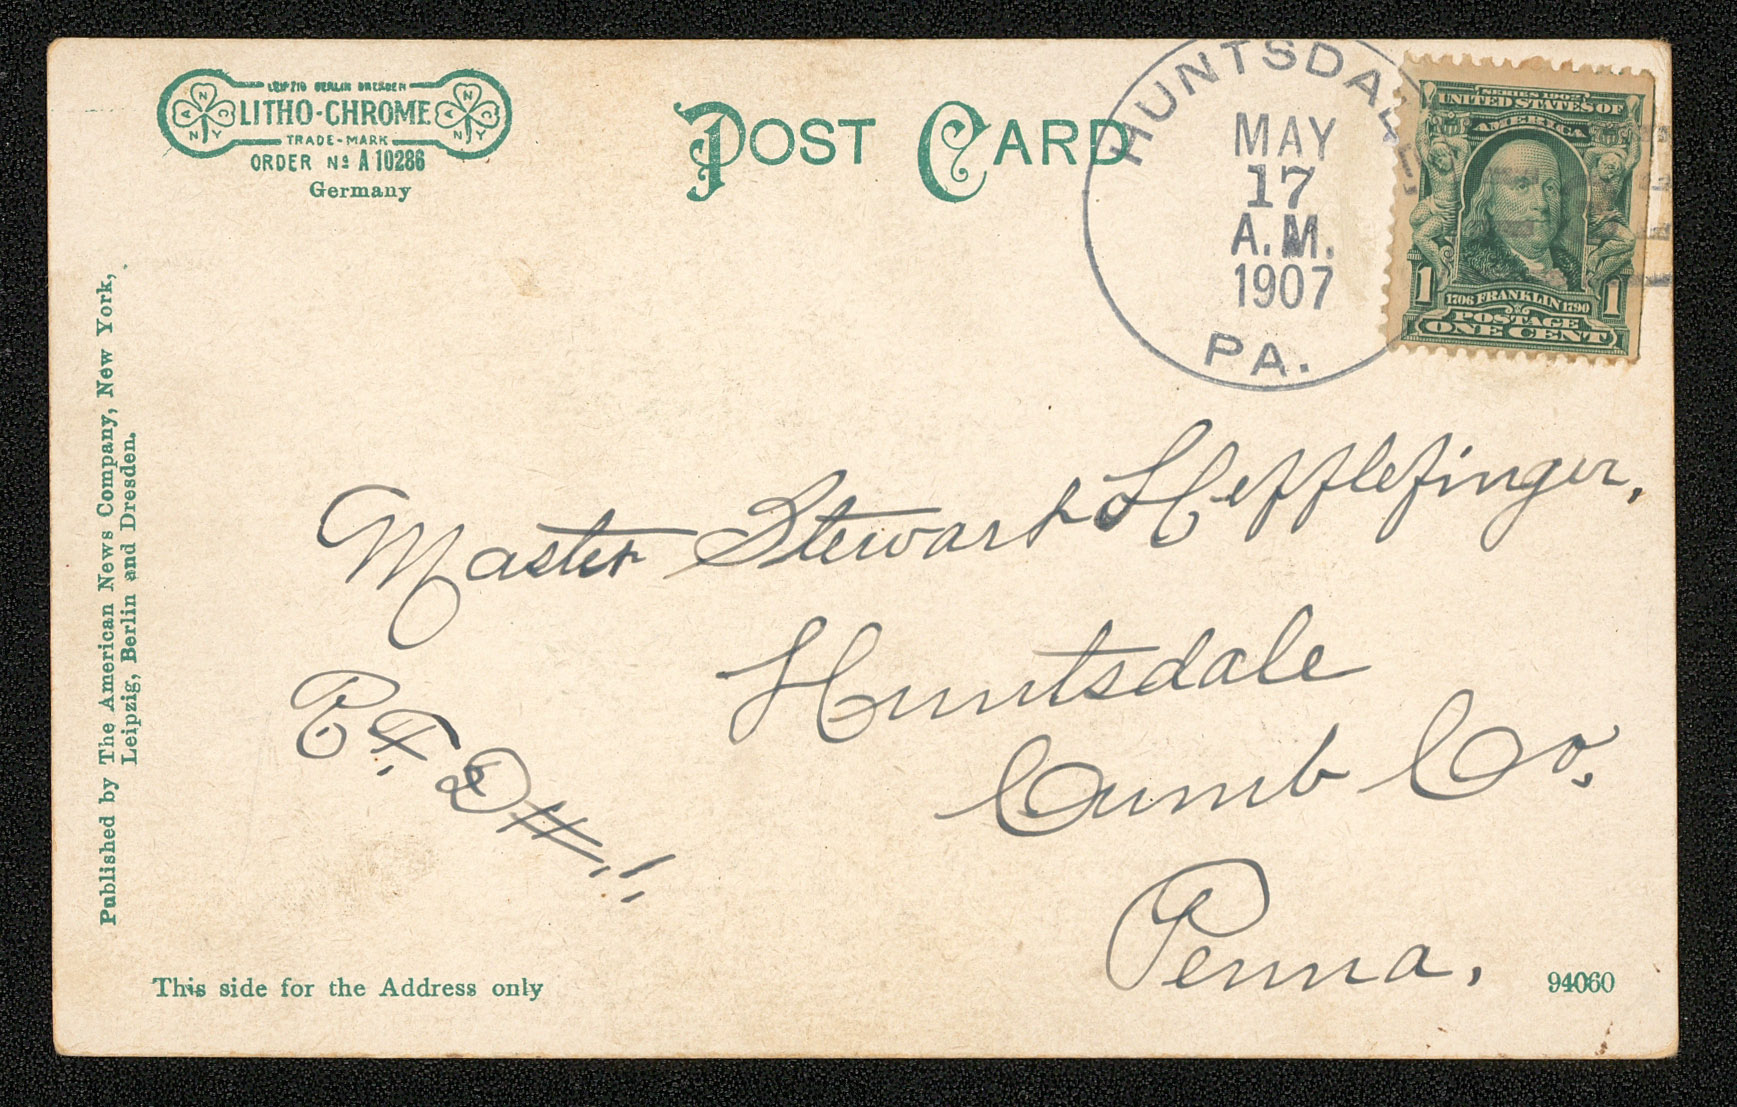 LEIPZIG BERLIN DRESDEN
LITHO-CHROME
TRADE-MARK
ORDER Nº A 10286
Germany
POST CARD
HUNTSDALE
MAY
17
A.M.
1907
PA.
SERIES 1902
UNITED STATES OF
AMERICA
1 1706 FRANKLIN 1790 1
POSTAGE
ONE CENT
Published by The American News Company, New York,
Leipzig, Berlin and Dresden.
Master Stewart Hefflefinger,
Huntsdale
R.F.D #.1.
Cumb Co.
Penna.
This side for the Address only
94060